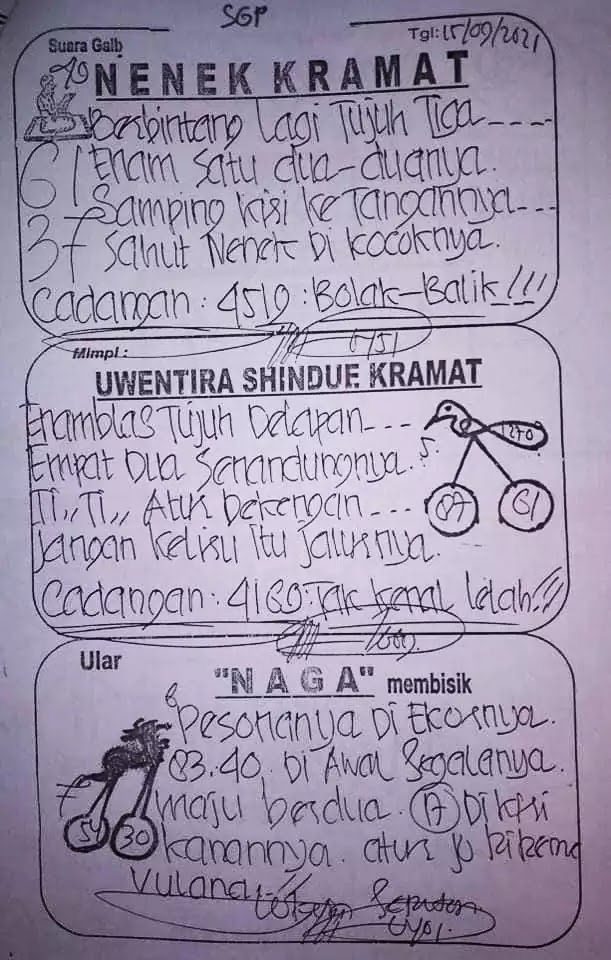 SGP
Suara Gaib
Tgl: 15/09/2021
NENEK KRAMAT
Berbintang Lagi Tujuh Tiga----
61 Enam Satu dua-duanya.
Samping kiri ke Tangannya---
37 Sahut Nenek Di kocoknya.
Cadangan: 4519: Bolak-Balik!!!
6151
Mimpi :
UWENTIRA SHINDUE KRAMAT
Enamblas Tujuh Delapan---
1270
Empat Dua Senandungnya.
Ti,, Ti,, Atur Dekengan---
61
Jangan Keliru Itu Jalurnya.
Cadangan: 4160: Tak kenal Lelah!!!
Ular
"NAGA" membisik
Pesonanya Di Ekornya.
03.40. Di Awal Segalanya.
7
maju berdua. 17 Di kiri
54 30
kanannya. atur jo